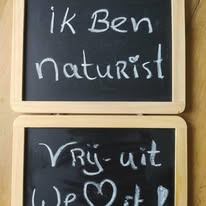 ik Ben
naturist
Vrij-uit
We♡st!